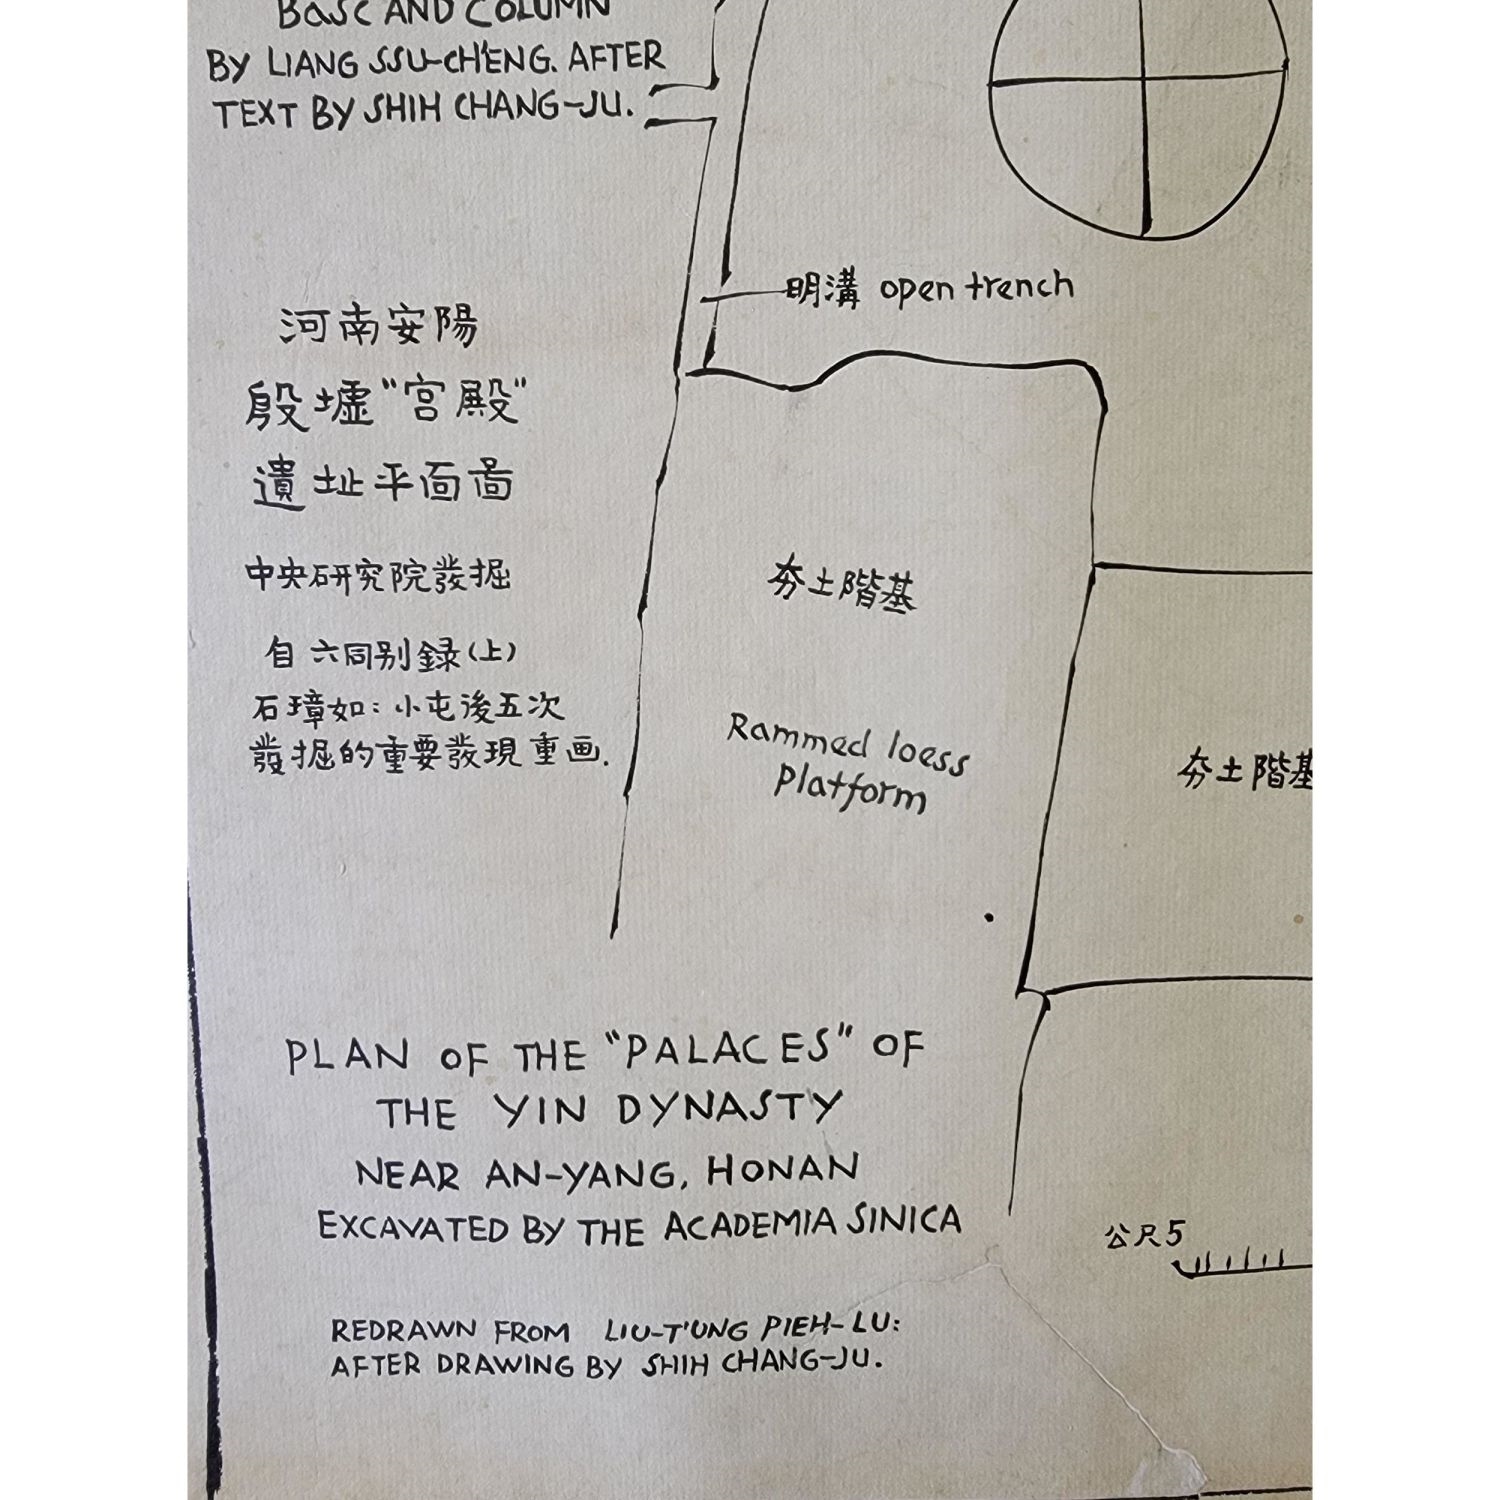 BASE AND COLUMN
BY LIANG SSU-CH'ENG. AFTER
TEXT BY SHIH CHANG-JU.
明溝 open trench
河南安陽
殷墟"宮殿"
遺址平面啚
中央研究院發掘
自六同别録(上)
石璋如:小屯後五次
發掘的重要發現重画.
夯土階基
Rammed loess
Platform
夯土階基
PLAN OF THE "PALACES" OF
THE YIN DYNASTY
NEAR AN-YANG, HONAN
EXCAVATED BY THE ACADEMIA SINICA
公尺5
REDRAWN FROM LIU-T'UNG PIEH-LU:
AFTER DRAWING BY SHIH CHANG-JU.